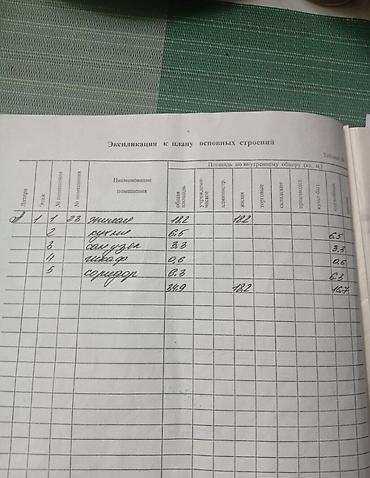 Экспликация к плану основных строений
Литера Этаж № помещения № помещения Наименование помещения Площадь по внутреннему обмеру (кв. м)
общая площадь администр. жилая торговые складские производст.
1 1 23 жилая 18.2 18.2
2 кухня 6.5 6.5
3 санузел 3.3 3.3
4 шкаф 0.6 0.6
5 коридор 6.3 6.3
34.9 18.2 16.7